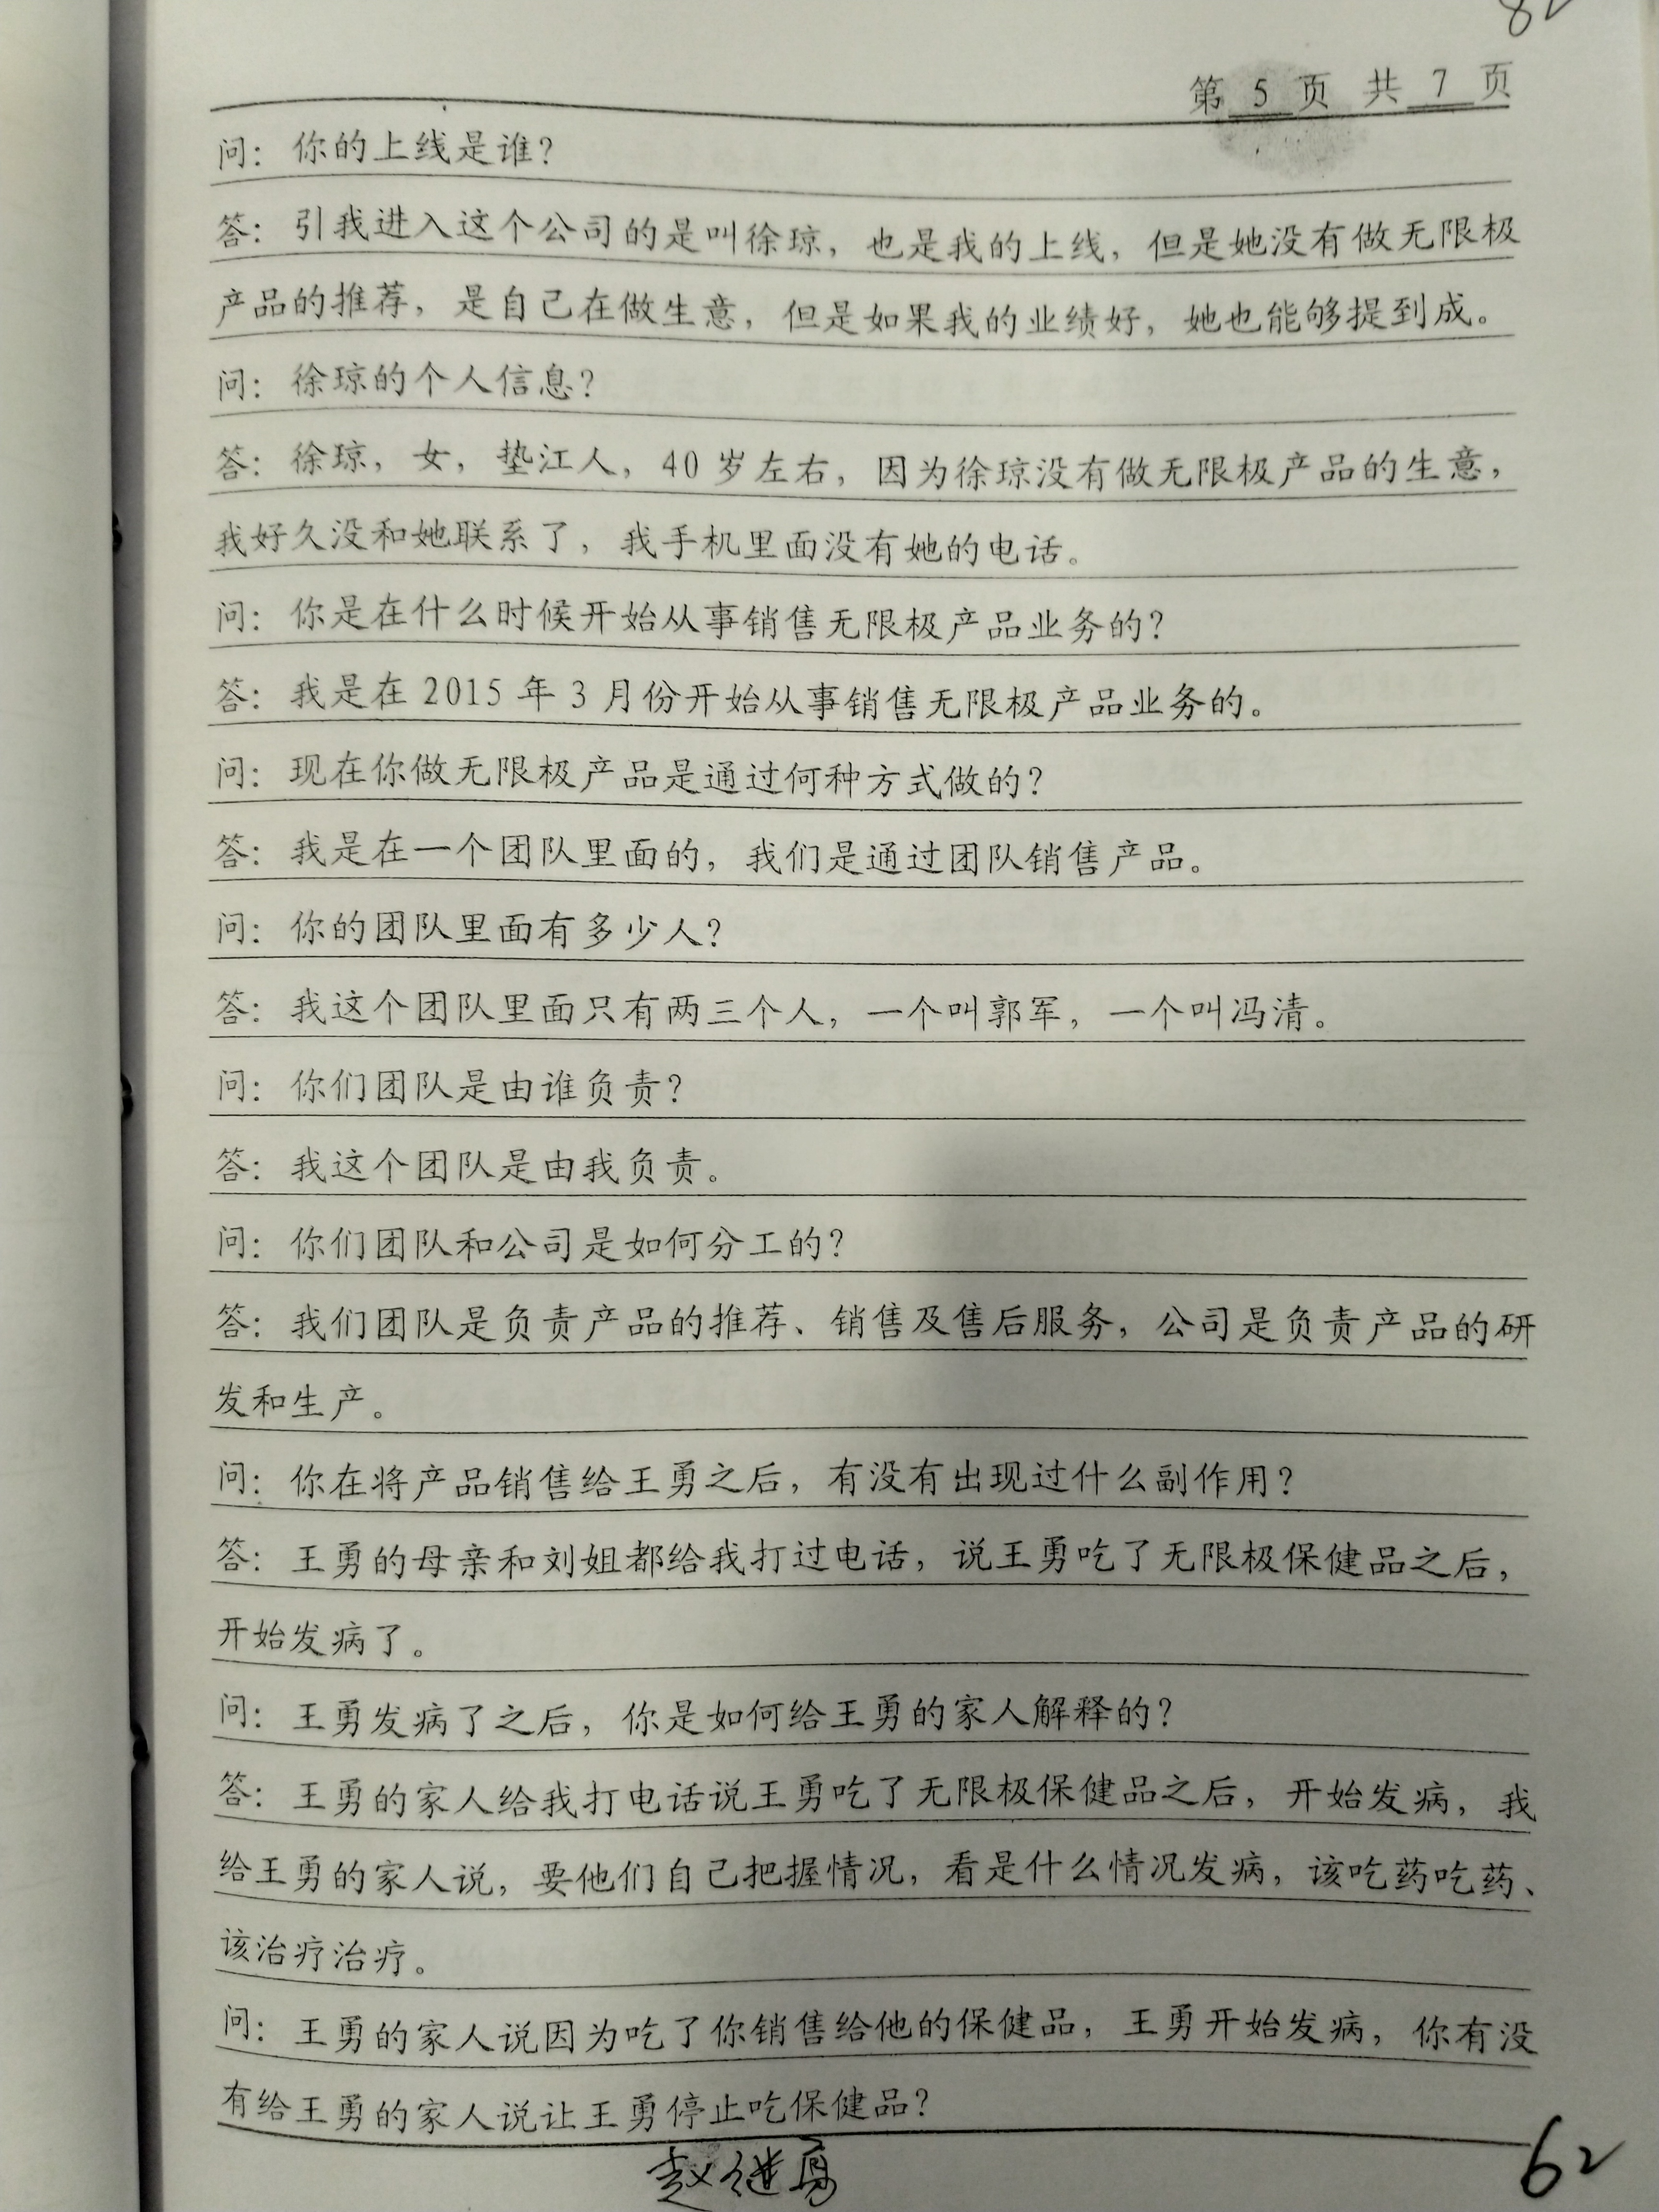 82
第 5 页 共 7 页
问：你的上线是谁？
答：引我进入这个公司的是叫徐琼，也是我的上线，但是她没有做无限极
产品的推荐，是自己在做生意，但是如果我的业绩好，她也能够提到成。
问：徐琼的个人信息？
答：徐琼，女，垫江人，40 岁左右，因为徐琼没有做无限极产品的生意，
我好久没和她联系了，我手机里面没有她的电话。
问：你是在什么时候开始从事销售无限极产品业务的？
答：我是在 2015 年 3 月份开始从事销售无限极产品业务的。
问：现在你做无限极产品是通过何种方式做的？
答：我是在一个团队里面的，我们是通过团队销售产品。
问：你的团队里面有多少人？
答：我这个团队里面只有两三个人，一个叫郭军，一个叫冯清。
问：你们团队是由谁负责？
答：我这个团队是由我负责。
问：你们团队和公司是如何分工的？
答：我们团队是负责产品的推荐、销售及售后服务，公司是负责产品的研
发和生产。
问：你在将产品销售给王勇之后，有没有出现过什么副作用？
答：王勇的母亲和刘姐都给我打过电话，说王勇吃了无限极保健品之后，
开始发病了。
问：王勇发病了之后，你是如何给王勇的家人解释的？
答：王勇的家人给我打电话说王勇吃了无限极保健品之后，开始发病，我
给王勇的家人说，要他们自己把握情况，看是什么情况发病，该吃药吃药、
该治疗治疗。
问：王勇的家人说因为吃了你销售给他的保健品，王勇开始发病，你有没
有给王勇的家人说让王勇停止吃保健品？
62